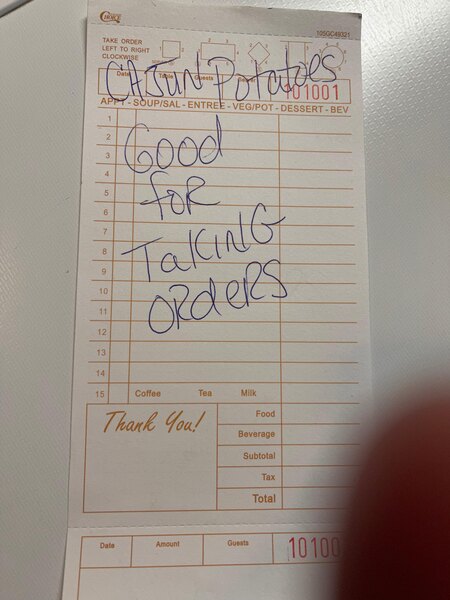 CHOICE
105GC49321
TAKE ORDER
LEFT TO RIGHT
CLOCKWISE
CAJUN Potatoes
Date Table Guests
101001
APPT - SOUP/SAL - ENTREE - VEG/POT - DESSERT - BEV
1
2
Good
3
4
5
foR
6
7
TaKING
8
9
10
ORdeRS
11
12
13
14
15 Coffee Tea Milk
Thank You!
Food
Beverage
Subtotal
Tax
Total
Date Amount Guests
10100